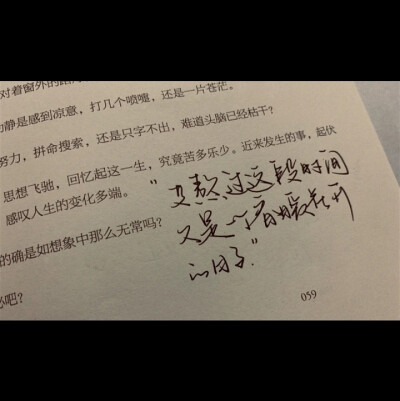 对着窗外的
静是感到凉意,打几个喷嚏,还是一片苍茫。
努力,拼命搜索,还是只字不出,难道头脑已经枯干?
思想飞驰,回忆起这一生,究竟苦多乐少。近来发生的事,起伏
感叹人生的变化多端。
的确是如想象中那么无常吗?
吧?
"熬过这段时间
又是一个春暖花开
的日子."
059